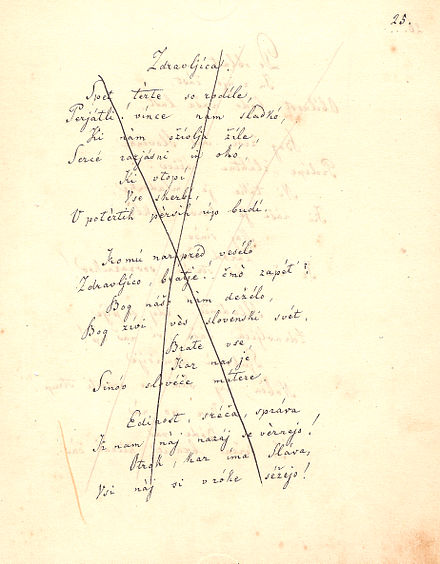 25.
Zdravljica.
Spet tèrte so rodíle,
Perjátli, vince nam sladkó,
Ki nàm oživlja žíle,
Sercé razjásni in okó
Ki vtopi
Vse skerbi,
V potèrtih pèrsih úp budí.
Komú narpréd veséló
Zdravljíco, bratje! čmò zapét'!
Bog nášo nàm dežêlo,
Bog živi vès slovénski svét,
Bráte vse,
Kar nas je
Sinóv slovéče mátere.
Edinost, sréča, správa
K nam nàj nazáj se vèrnejo!
Otrók, kar ima Sláva,
Vsi nàj si v róke séžejo!